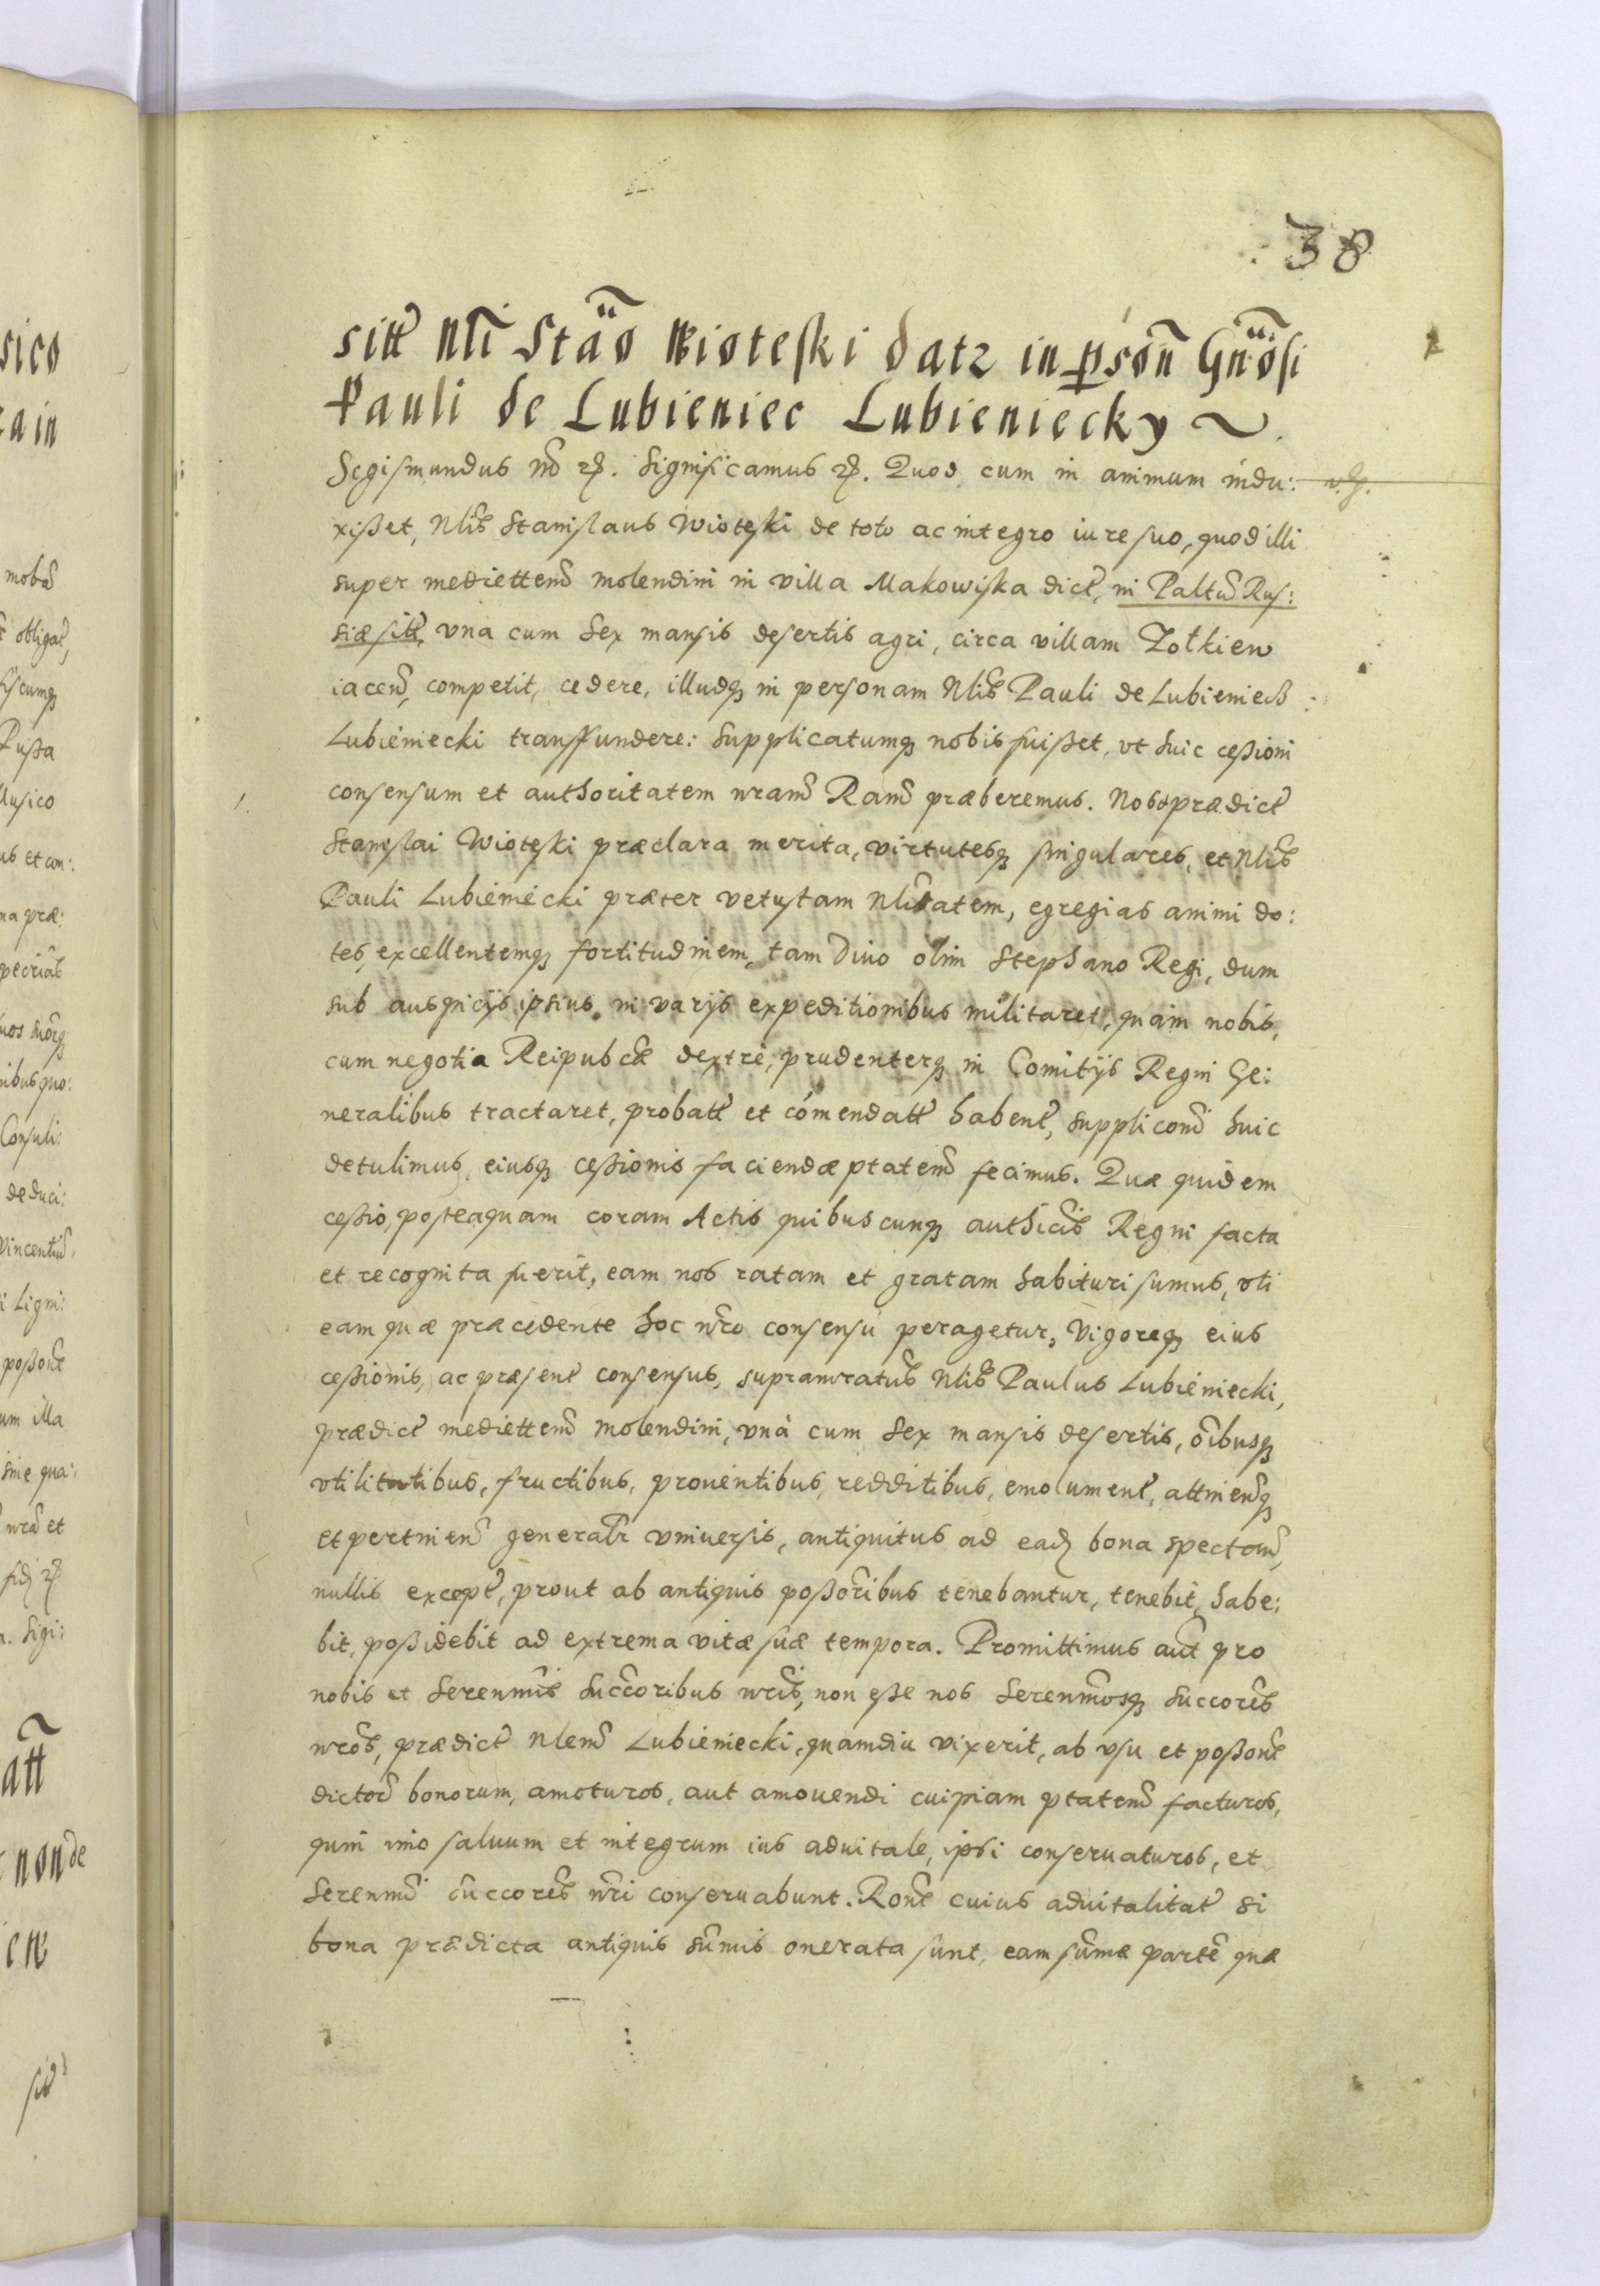 38
sitt Nli Stão Wioteski datz in psõn Gnõsi
Pauli de Lubieniec Lubieniecky ~
Sigismundus etc. Significamus etc. Quod cum in animum indu:
xißet, Nlis Stanislaus Wioteski de toto ac integro iure suo, quod illi
super mediettem molendini in villa Makowiska dict, in Paltu Rus:
siæ sitt, vna cum sex mansis desertis agri, circa villam Zołkiew
iacen, competit, cedere, illudq in personam Nlis Pauli de Lubieniecz
Lubieniecki transffundere: Supplicatumq nobis fuißet, vt huic ceßioni
consensum et authoritatem nram Ram præberemus. Nos prædict
Stanislai Wioteski præclara merita, virtutesq singulares, et Nlis
Pauli Lubieniecki præter vetustam Nlitatem, egregias animi do:
tes, excellentemq fortitudinem, tam Diuo olim Stephano Regi, dum
sub auspicijs ipsius in varijs expeditionibus militaret, quàm nobis,
cum negotia Reipubcæ dextrè, prudenterq in Comitijs Regni Ge:
neralibus tractaret, probatt et comendatt habent, suppliconi huic
detulimus, eiusq ceßionis faciendæ ptatem fecimus. Quæ quidem
ceßio, posteaquam coram Actis quibuscunq authcis Regni facta
et recognita fuerit, eam nos ratam et gratam habituri sumus, vti
eam quæ præcedente hoc nro consensu peragetur, Vigoreq eius
ceßionis, ac præsent consensus, supranratus Nlis Paulus Lubieniecki,
prædict mediettem molendini, vnà cum sex mansis desertis, oibusq
vtilitatibus, fructibus, prouentibus, redditibus, emolument, attinenq
et pertinen generalr vniuersis, antiquitus ad ead bona spectan,
nullis except, prout ab antiquis poßoribus tenebantur, tenebit, habe:
bit, poßidebit ad extrema vitæ suæ tempora. Promittimus aut pro
nobis et Serenmis Succoribus nris, non eße nos Serenmosq Succores
nros, prædict Nlem Lubieniecki, quamdiu vixerit, ab vsu et poßone
dictor bonorum, amoturos, aut amouendi cuipiam ptatem facturos,
quin imo saluum et integrum ius aduitale, ipsi conseruaturos, et
Serenmi succores nri conseruabunt. Rone cuius aduitalitat si
bona prædicta antiquis sumis onerata sunt, eam sumæ partẽ quæ